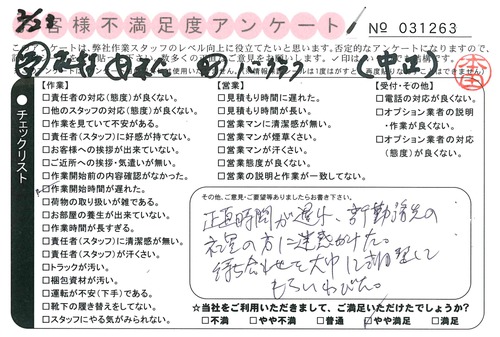 3/22
お客様不満足度アンケート
No 031263
このアンケートは、弊社作業スタッフのレベル向上に役立てたいと思います。否定的なアンケートになりますので、
✓印はいくつでも結構です。
チェックリスト
【作業】
□責任者の対応(態度)が良くない。
□他のスタッフの対応(態度)が良くない。
□作業を見ていて不安がある。
□責任者(スタッフ)に好感が持てない。
□お客様への挨拶が出来ていない。
□ご近所への挨拶・気遣いが無い。
□作業開始前の内容確認がなかった。
□作業開始時間が遅れた。
□荷物の取り扱いが雑である。
□お部屋の養生が出来ていない。
□作業時間が長すぎる。
□責任者(スタッフ)に清潔感が無い。
□責任者(スタッフ)が汗くさい。
□トラックが汚い。
□梱包資材が汚い。
□運転が不安(下手)である。
□靴下の履き替えをしてない。
□スタッフにやる気がみられない。
【営業】
□見積もり時間に遅れた。
□見積もり時間が長い。
□営業マンに清潔感が無い。
□営業マンが煙草くさい。
□営業マンが汗くさい。
□営業態度が良くない。
□営業の説明と作業が一致してない。
【受付・その他】
□電話の対応が良くない。
□オプション業者の説明
・作業が良くない。
□オプション業者の対応
(態度)が良くない。
その他、ご意見・ご要望等ありましたらお書き下さい。
時間が遅れ、新勤務先の
の方に迷惑かけた。
待ち合わせを大巾に調整して
もらいわびた。
☆当社をご利用いただきまして、ご満足いただけたでしょうか?
□不満 □やや不満 □普通 □やや満足 □満足